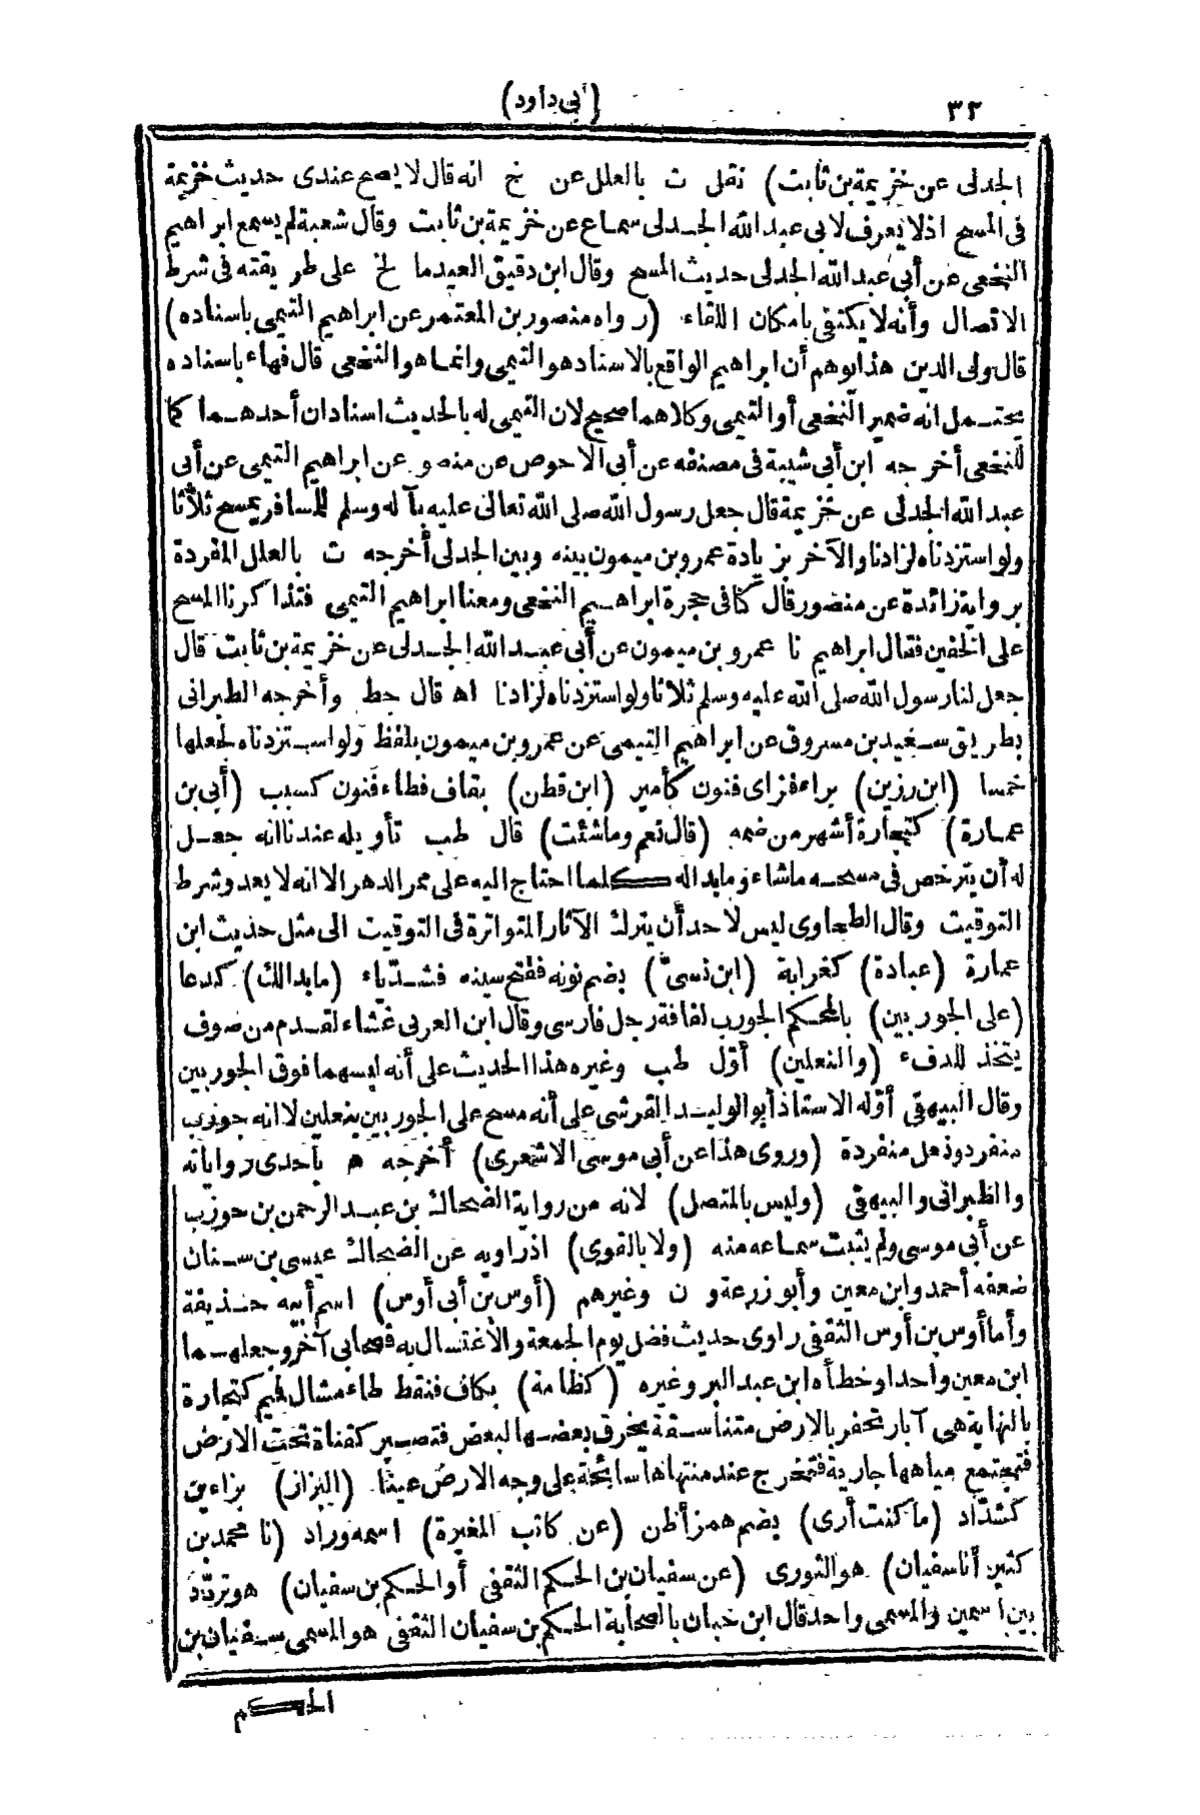 ٣٢
(أبي داود)
الجدلى عن خزيمة بن ثابت) نقل ت بالعلل عن خ انه قال لا يصح عندى حديث خزيمة
فى المسح اذ لا يعرف لابى عبد الله الجدلى سماع عن خزيمة بن ثابت وقال شعبة لم يسمع ابراهيم
النخعى عن أبى عبد الله الجدلى حديث المسح وقال ابن دقيق العيد ما لخ على طريقته فى شرط
الاتصال وأنه لا يكتفى بامكان اللقاء (رواه منصور بن المعتمر عن ابراهيم التيمى باسناده)
قال ولى الدين هذا يوهم أن ابراهيم الواقع بالاسناد هو التيمى وانما هو النخعى قال فهاء باسناده
يحتمل انه ضمير النخعى أو التيمى وكلاهما صحيح لان التيمى له بالحديث اسنادان أحدهما كما
للنخعى أخرجه ابن أبى شيبة فى مصنفه عن أبى الاحوص عن منصور عن ابراهيم التيمى عن أبى
عبد الله الجدلى عن خزيمة قال جعل رسول الله صلى الله تعالى عليه بآله وسلم للمسافر يمسح ثلاثا
ولو استزدناه لزادنا والآخر بزيادة عمرو بن ميمون بينه وبين الجدلى أخرجه ت بالعلل المفردة
برواية زائدة عن منصور قال كنا فى حجرة ابراهيم النخعى ومعنا ابراهيم التيمى فتذاكرنا المسح
على الخفين فقال ابراهيم نا عمرو بن ميمون عن أبى عبد الله الجدلى عن خزيمة بن ثابت قال
جعل لنا رسول الله صلى الله عليه وسلم ثلاثا ولو استزدناه لزادنا اه قال حط وأخرجه الطبرانى
بطريق سعيد بن مسروق عن ابراهيم التيمى عن عمرو بن ميمون بلفظ ولو استزدناه لجعلها
خمسا (ابن رزين) براء فزاى فنون كأمير (ابن قطن) بقاف فطاء فنون كسبب (أبى بن
عمارة) كتجارة أشهر من ضمه (قال نعم وماشئت) قال طب تأويله عندنا انه جعل
له أن يترخص فى مسحه ما شاء وما بدا له كلما احتاج اليه على ممر الدهر الا انه لا يعدو شرط
التوقيت وقال الطحاوى ليس لاحد أن يترك الآثار المتواترة فى التوقيت الى مثل حديث ابن
عمارة (عبادة) كغرابة (ابن نسىّ) بضم نونه ففتح سينه فشدّ ياء (ما بدا لك) كدعا
(على الجوربين) بالمحكم الجورب لفافة رجل فارسى وقال ابن العربى غشاء لقدم من صوف
يتخذ للدفء (والنعلين) أوّل طب وغيره هذا الحديث على أنه لبسهما فوق الجوربين
وقال البيهقى أوّله الاستاذ أبو الوليد القرشى على أنه مسح على الجوربين بنعلين لا انه جورب
منفرد ونعل منفردة (وروى هذا عن أبى موسى الاشعرى) أخرجه ه باحدى رواياته
والطبرانى والبيهقى (وليس بالمتصل) لانه من رواية الضحاك بن عبد الرحمن بن حوزب
عن أبى موسى ولم يثبت سماعه منه (ولا بالقوى) اذ راويه عن الضحاك عيسى بن سنان
ضعفه أحمد وابن معين وأبو زرعة و ن وغيرهم (أوس بن أبى أوس) اسم أبيه حذيفة
وأما أوس بن أوس الثقفى راوى حديث فضل يوم الجمعة والاغتسال به فصحابى آخر وجعلهما
ابن معين واحدا وخطأه ابن عبد البر وغيره (كظامة) بكاف فنقط طاء مشال فميم كتجارة
بالنهاية هى آبار تحفر بالارض متناسقة يخرق بعضها لبعض فتصير كقناة تحت الارض
فتجتمع مياهها جارية فتخرج عند منتهاها سائحة على وجه الارض عينا. (البزاز) بزاءين
كشدّاد (ما كنت أرى) بضم همز أظن (عن كاتب المغيرة) اسمه وراد (نا محمد بن
كثير أنا سفيان) هو الثورى (عن سفيان بن الحكم الثقفى أو الحكم بن سفيان) هو تردّد
بين اسمين والمسمى واحد قال ابن حبان بالصحابة الحكم بن سفيان الثقفى هو المسمى سفيان بن
الحكم